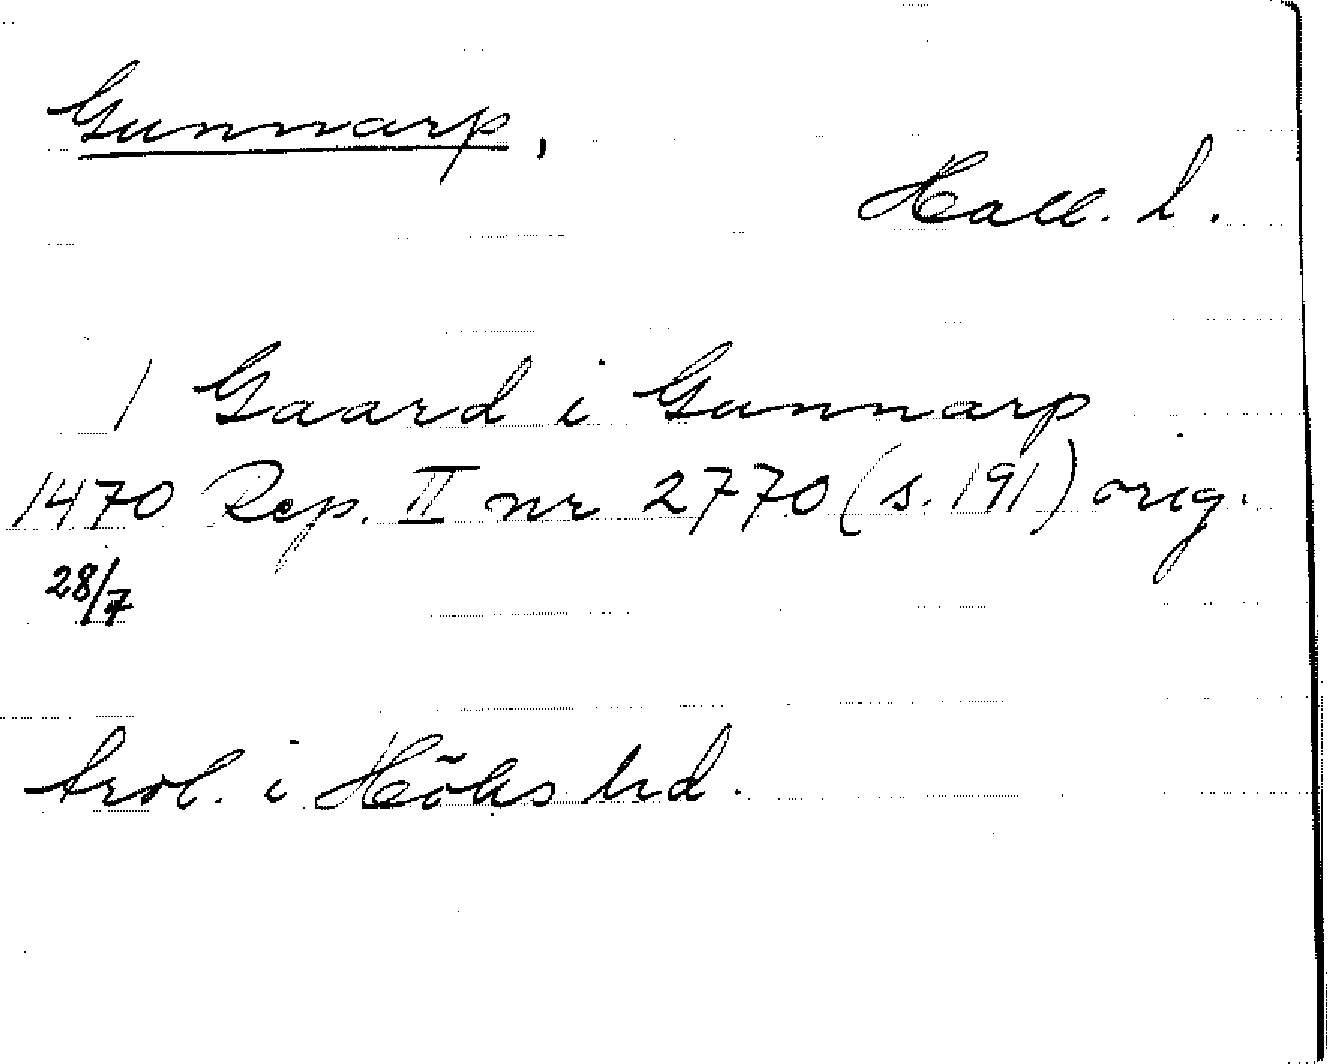 Gunnarp,
Hall. l.
1 Gaard i Gunnarp
1470 Rep. II nr 2770 (s. 191) orig.
28/7
trol. i Höks hrd.